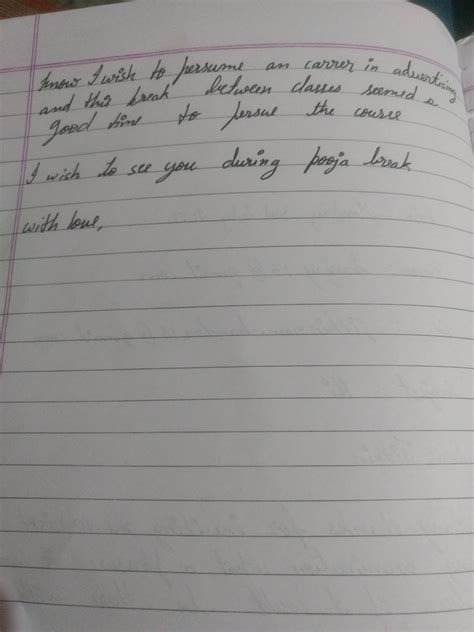 know I wish to persume an carrer in advertising
and this break between classes seemed a
good time to persue the course
I wish to see you during pooja break
with love,